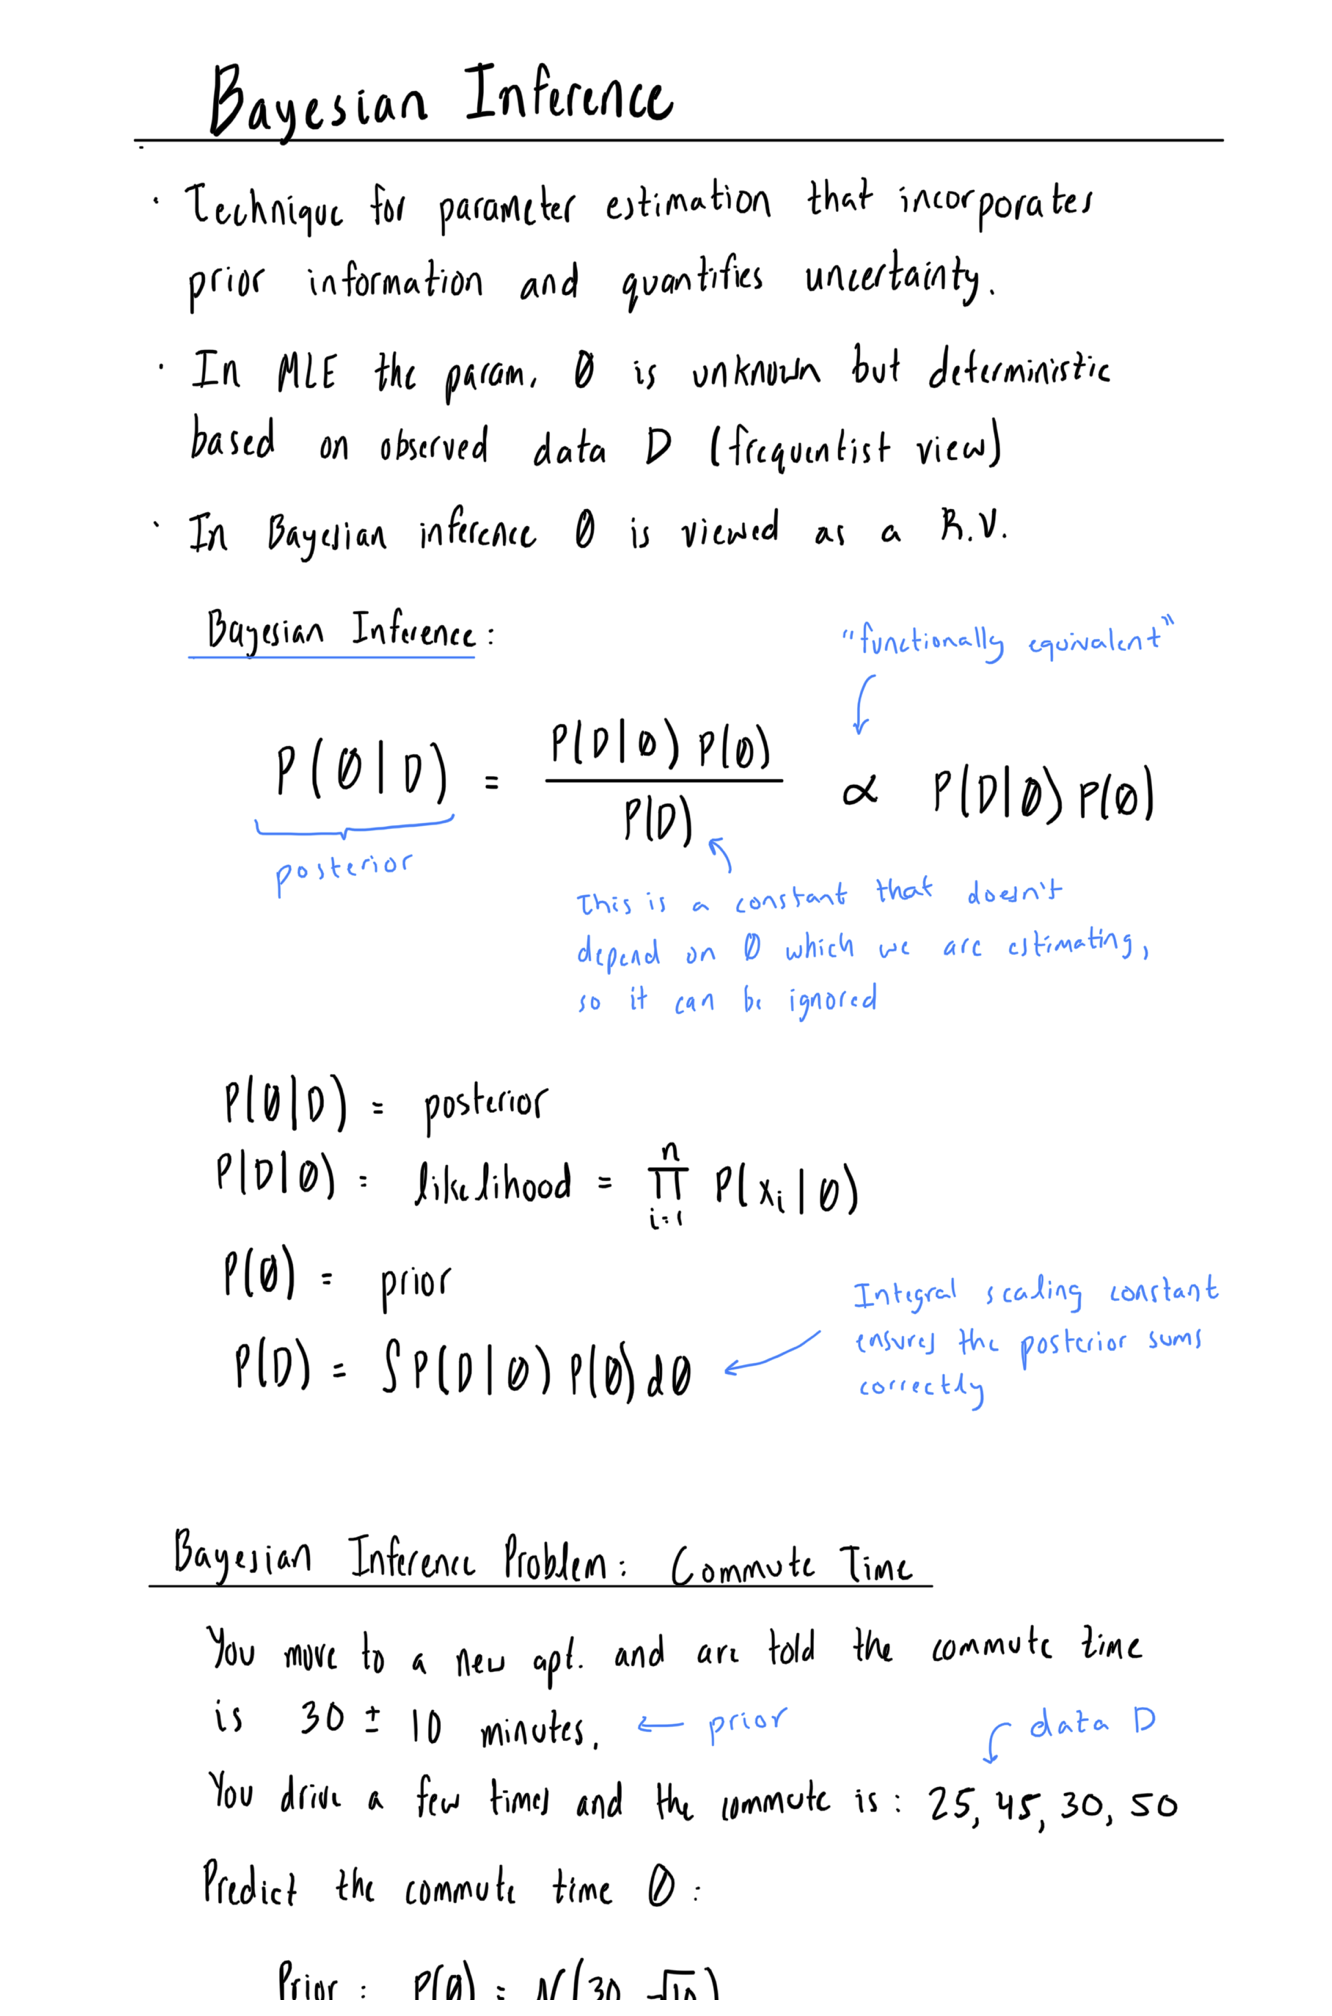 Bayesian Inference
· Technique for parameter estimation that incorporates
prior information and quantifies uncertainty.
· In MLE the param. θ is unknown but deterministic
based on observed data D (frequentist view)
· In Bayesian inference θ is viewed as a R.V.
Bayesian Inference:
"functionally equivalent"
P(θ|D) = P(D|θ) P(θ) / P(D) ∝ P(D|θ) P(θ)
posterior
This is a constant that doesn't
depend on θ which we are estimating,
so it can be ignored
P(θ|D) = posterior
P(D|θ) = likelihood = ∏_{i=1}^{n} P(x_i|θ)
P(θ) = prior
P(D) = ∫P(D|θ) P(θ) dθ
Integral scaling constant
ensures the posterior sums
correctly
Bayesian Inference Problem: Commute Time
You move to a new apt. and are told the commute time
is 30 ± 10 minutes. ← prior
data D
You drive a few times and the commute is: 25, 45, 30, 50
Predict the commute time θ:
Prior: P(θ) = N(30, √10)